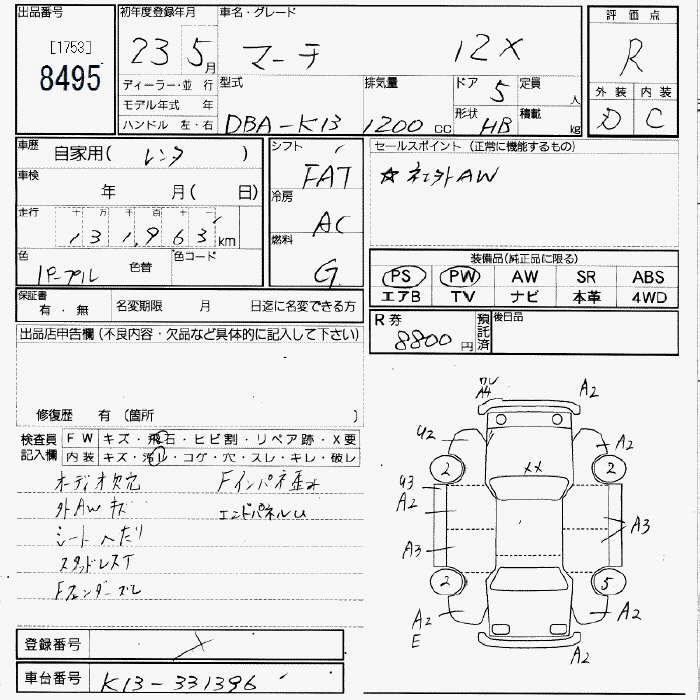 出品番号
[1753]
8495
初年度登録年月
23 5月
車名・グレード
マーチ 12X
評価点
R
外装 内装
D C
ディーラー・並行
モデル年式 年
ハンドル 左・右
型式
DBA-K13
排気量
1200 cc
ドア
5
形状
HB
定員
人
積載
kg
車歴
自家用(レンタ)
車検
年 月( 日)
走行
十万千百十一
131,963 km
色
パープル
色替
色コード
シフト
FAT
冷房
AC
燃料
G
セールスポイント (正常に機能するもの)
☆社外AW
装備品(純正品に限る)
PS PW AW SR ABS
エアB TV ナビ 本革 4WD
保証書
有・無
名変期限 月 日迄に名変できる方
R券
8800円
預託済
後日品
出品店申告欄(不良内容・欠品など具体的に記入して下さい)
修復歴 有 (箇所 )
検査員記入欄
FW キズ・飛石・ヒビ割・リペア跡・X要
内装 キズ・汚れ・コゲ・穴・スレ・キレ・破レ
オーディオ欠完
外AWキズ
シートヘたり
スタッドレスT
Fフェンダーズレ
Fインパネ歪み
エンドパネルU
ワレ
A4
A2
U2
A2
2
2
XX
U3
A2
A3
A3
2
5
A2
E
A2
A2
登録番号
車台番号 K13-331396